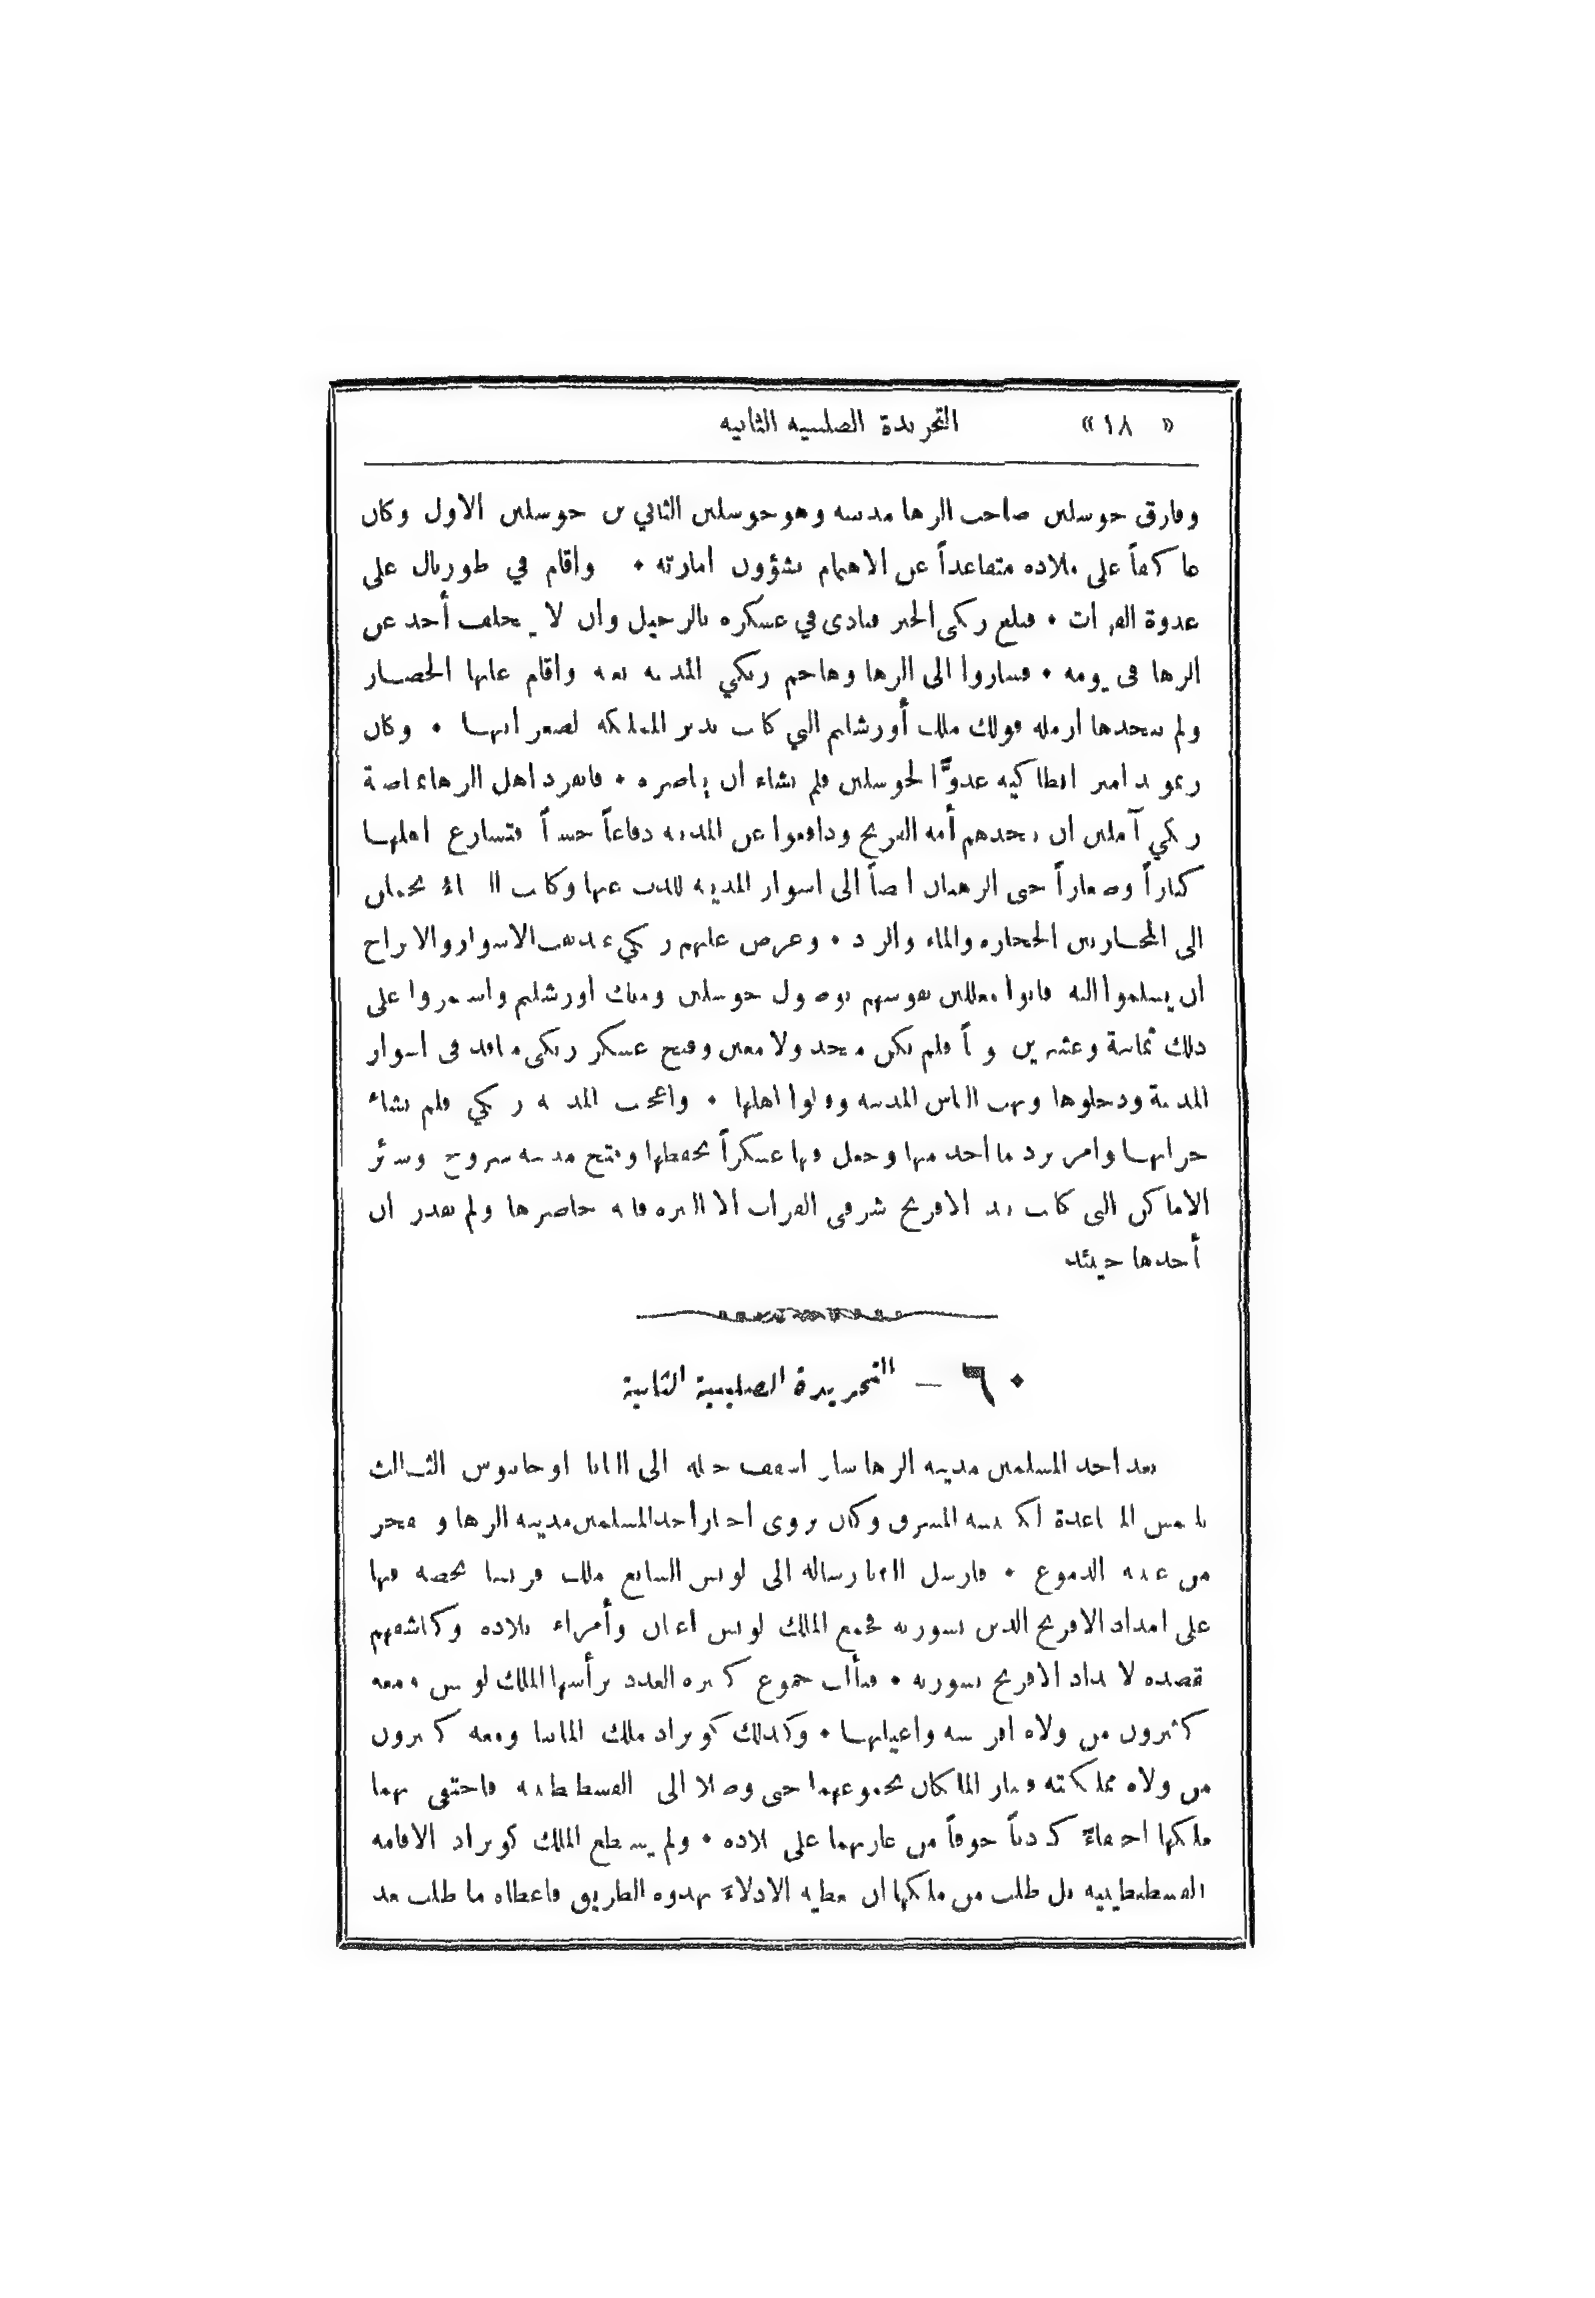 « ١٨ » التجريدة الصليبيه الثانيه
وفارق جوسلين صاحب الرها مدينته وهو جوسلين الثاني بن جوسلين الاول وكان
عاكفاً على ملاذه متقاعداً عن الاهتمام بشؤون امارته • واقام في طوربال على
عدوة الفرات • فبلغ زنكي الخبر فنادى في عسكره بالرحيل وان لا يتخلف أحد عن
الرها في يومه • فساروا الى الرها وهاجم زنكي المدينة بغتة واقام عليها الحصار
ولم ينجدها ارملة فولك ملك أورشليم التي كانت تدبر المملكة لصغر ابنها • وكان
ريموند امير انطاكيه عدوًّا لجوسلين فلم يشاء ان يناصره • فانفرد اهل الرها بمناصبة
زنكي آملين ان ينجدهم أمة الفرنج ودافعوا عن المدينة دفاعاً حسناً فتسارع اهلها
كباراً وصغاراً حتى الرهبان ايضاً الى اسوار المدينة للذب عنها وكانت النساء يحملن
الى المحاربين الحجارة والماء والزاد • وعرض عليهم زنكي الاسوار والابراج
ان يسلموا اليه فابوا معللين نفوسهم بوصول جوسلين وملك اورشليم واستمروا على
ذلك ثمانية وعشرين يوماً فلم يكن منجد ولا معين وفتح عسكر زنكي منافذ في اسوار
المدينة ودخلوها ونهب الناس المدينه وقتلوا اهلها • واعجبت المدينة زنكي فلم يشاء
خرابها وامر برد ما أخذ منها وجعل فيها عسكراً يحفظها وفتح مدينة سروج وسائر
الاماكن التي كانت بيد الافرنج شرقي الفرات الا البيره فانه حاصرها ولم يقدر ان
يأخذها حينئذ
• ٦ – التجريدة الصليبية الثانية
بعد اخذ المسلمين مدينه الرها سار اسقف جبله الى البابا اوجانيوس الثالث
يلتمس المساعدة لكنيسه المشرق وكان يروى اخبار أخذ المسلمين مدينه الرها وتنفجر
من عينيه الدموع • فارسل البابا رساله الى لويس السابع ملك فرنسا يحضه فيها
على امداد الافرنج الذين بسوريه فجمع الملك لويس اعيان وأمراء بلاده وكاشفهم
قصده لامداد الافرنج بسوريه • فتألبت جموع كثيره العدد يرأسها الملك لويس ومعه
كثيرون من ولاة افرنسه واعيانها • وكذلك كونراد ملك المانيا ومعه كثيرون
من ولاه مملكته وسار الملكان بجموعهما حتى وصلا الى القسطنطينيه فاحتفى بهما
ملكها احتفاءً كذباً خوفاً من غاراتهما على بلاده • ولم يستطع الملك كونراد الاقامه
القسطنطينيه بل طلب من ملكها ان يعطيه الادلاء يهدوه الطريق فاعطاه ما طلب بعد